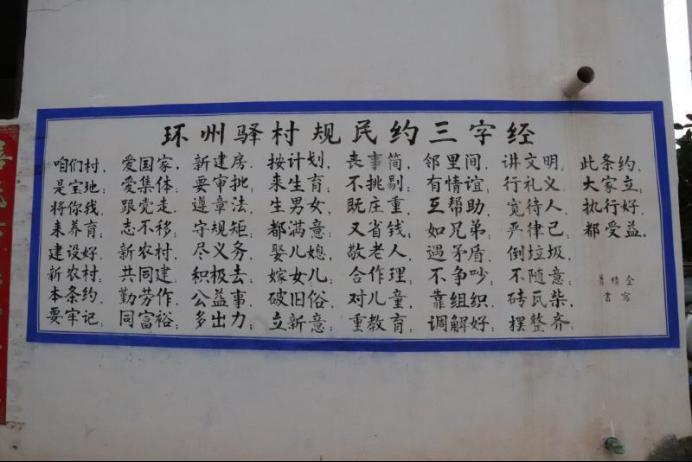 环州驿村规民约三字经
咱们村，
是宝地；
将你我，
来养育，
建设好，
新农村，
本条约，
要牢记；
爱国家，
爱集体；
跟党走，
志不移；
新农村，
共同建，
勤劳作，
同富裕；
新建房，
要审批，
遵章法，
守规矩；
尽义务，
积极去；
公益事，
多出力；
按计划，
来生育，
生男女，
都满意；
娶儿媳，
嫁女儿；
破旧俗，
立新意；
丧事简，
不挑剔；
既庄重，
又省钱；
敬老人，
合作理；
对儿童，
重教育；
邻里间，
有情谊，
互帮助，
如兄弟；
遇矛盾，
不争吵；
靠组织，
调解好；
讲文明，
行礼义，
宽待人，
严律己；
倒垃圾，
不随意；
砖瓦柴，
摆整齐，
此条约，
大家立；
执行好，
都受益。